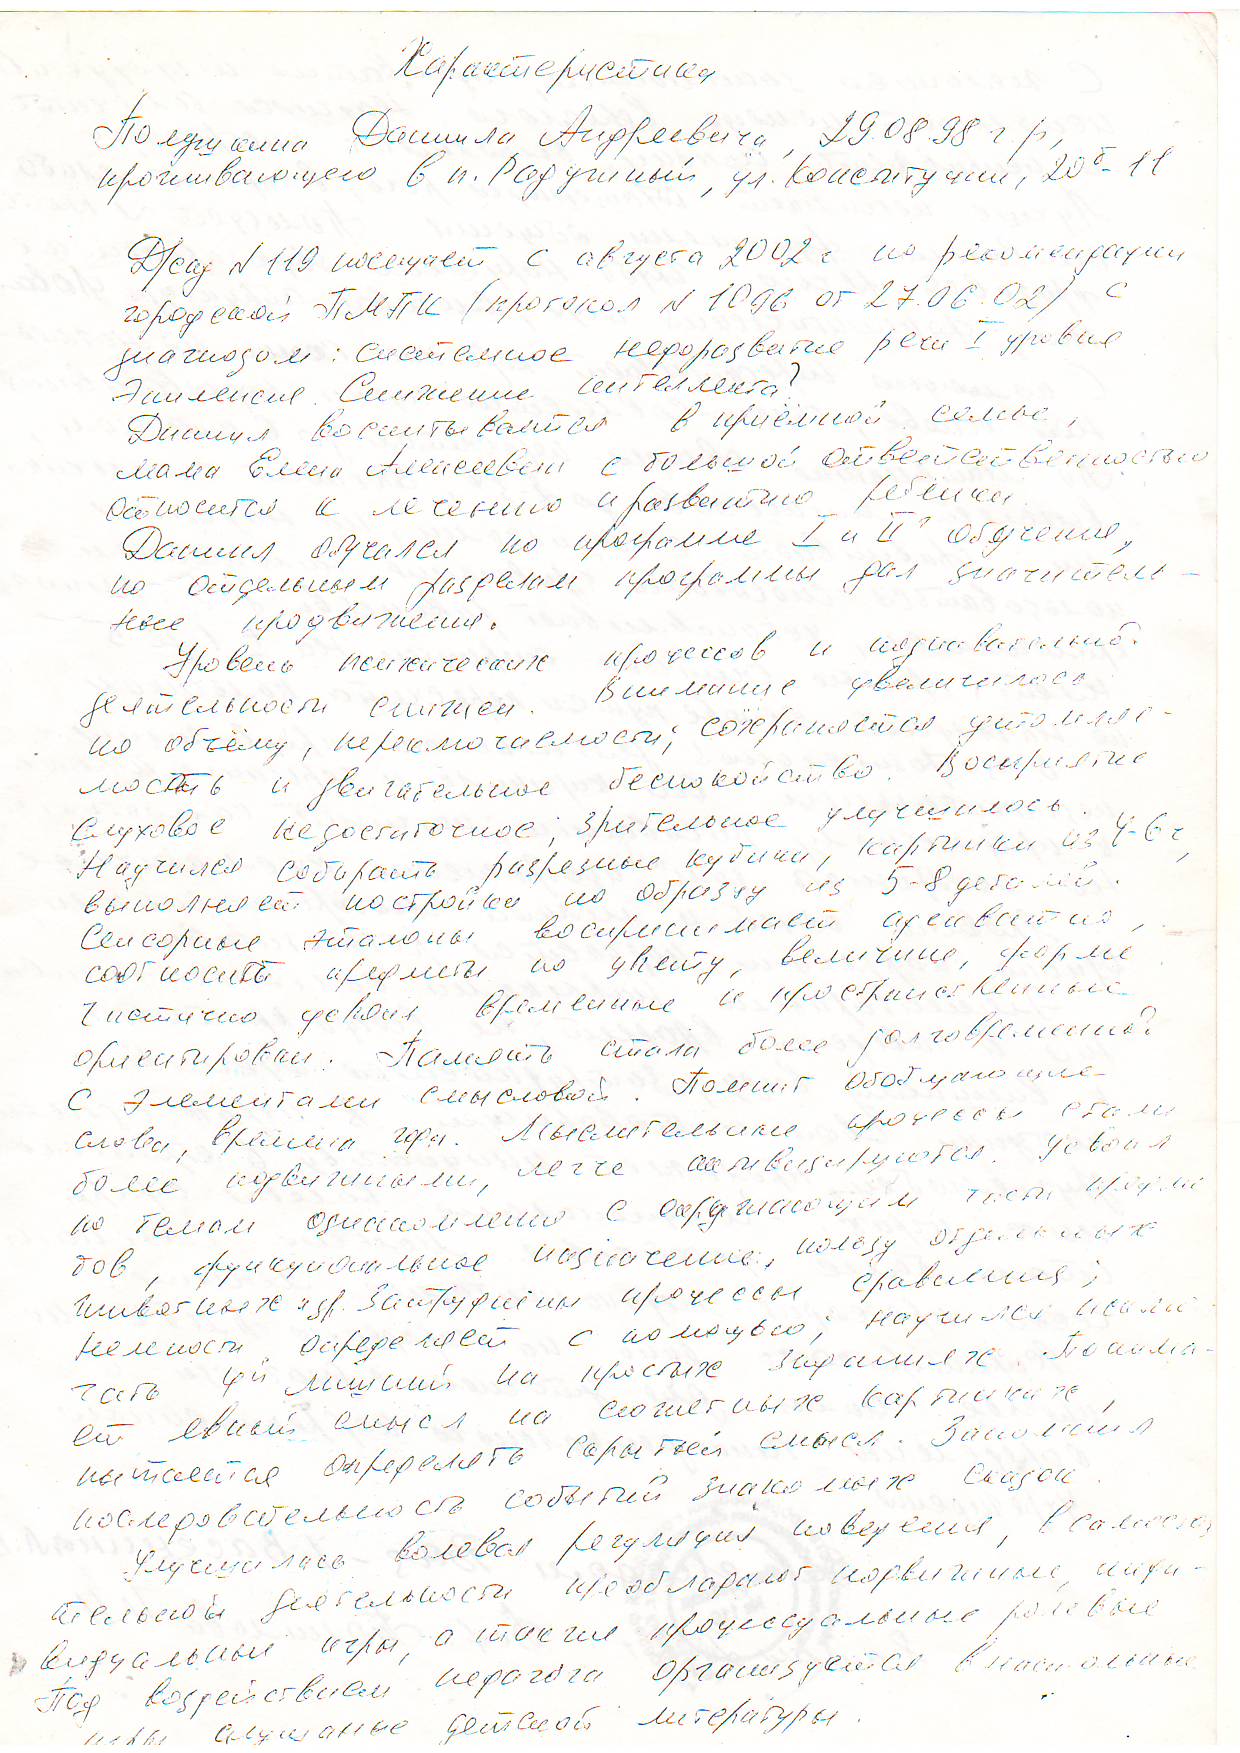 Характеристика
Данила Андреевича, 29.08.98 г р,
проживающего в п. Радужный, ул. Конституции, 20б-11
Д/сад N 119 посещает с августа 2002 г по рекомендации
городской ПМПК (протокол N 1096 от 27.06.02) с
диагнозом: системное недоразвитие речи I уровня
Эпилепсия. Снижение интеллекта?
Даниил воспитывается в приёмной семье,
мама Елена Алексеевна с большой ответственностью
относится к лечению и развитию ребёнка
Даниил обучался по программе I и II обучения,
по отдельным разделам программы дал значитель-
ные продвижения.
Уровень психических процессов и познавательной
деятельности снижен. Внимание увеличилось
по объёму, переключаемости; сохраняется утомляе-
мость и двигательное беспокойство. Восприятие
слуховое недостаточное, зрительное улучшилось.
Научился собирать разрезные кубики, картинки из 4-6 ч,
выполняет постройки по образцу из 5-8 деталей.
Сенсорные эталоны воспринимает адекватно,
соотносит предметы по цвету, величине, форме
Частично усвоил временные и пространственные
ориентировки. Память стала более долговременной
с элементами смысловой. Помнит обобщающие
слова, времена года. Мыслительные процессы стали
более подвижными, легче активизируются. Усвоил
по темам ознакомления с окружающим части предме
тов, функциональное назначение, пользу отдельных
животных и др. Затруднены процессы сравнения;
нелепости определяет с помощью; научился исклю
чать 4й лишний на простых заданиях. Понима-
ет явный смысл на сюжетных картинках,
пытается определять скрытый смысл. Запомнил
последовательность событий знакомых сказок.
Улучшилась волевая регуляция поведения, в самостоя
тельной деятельности преобладают подвижные, инди-
видуальные игры, а также процессуальные ролевые
Под воздействием педагога организуется в настольные
игры слушание детской литературы.